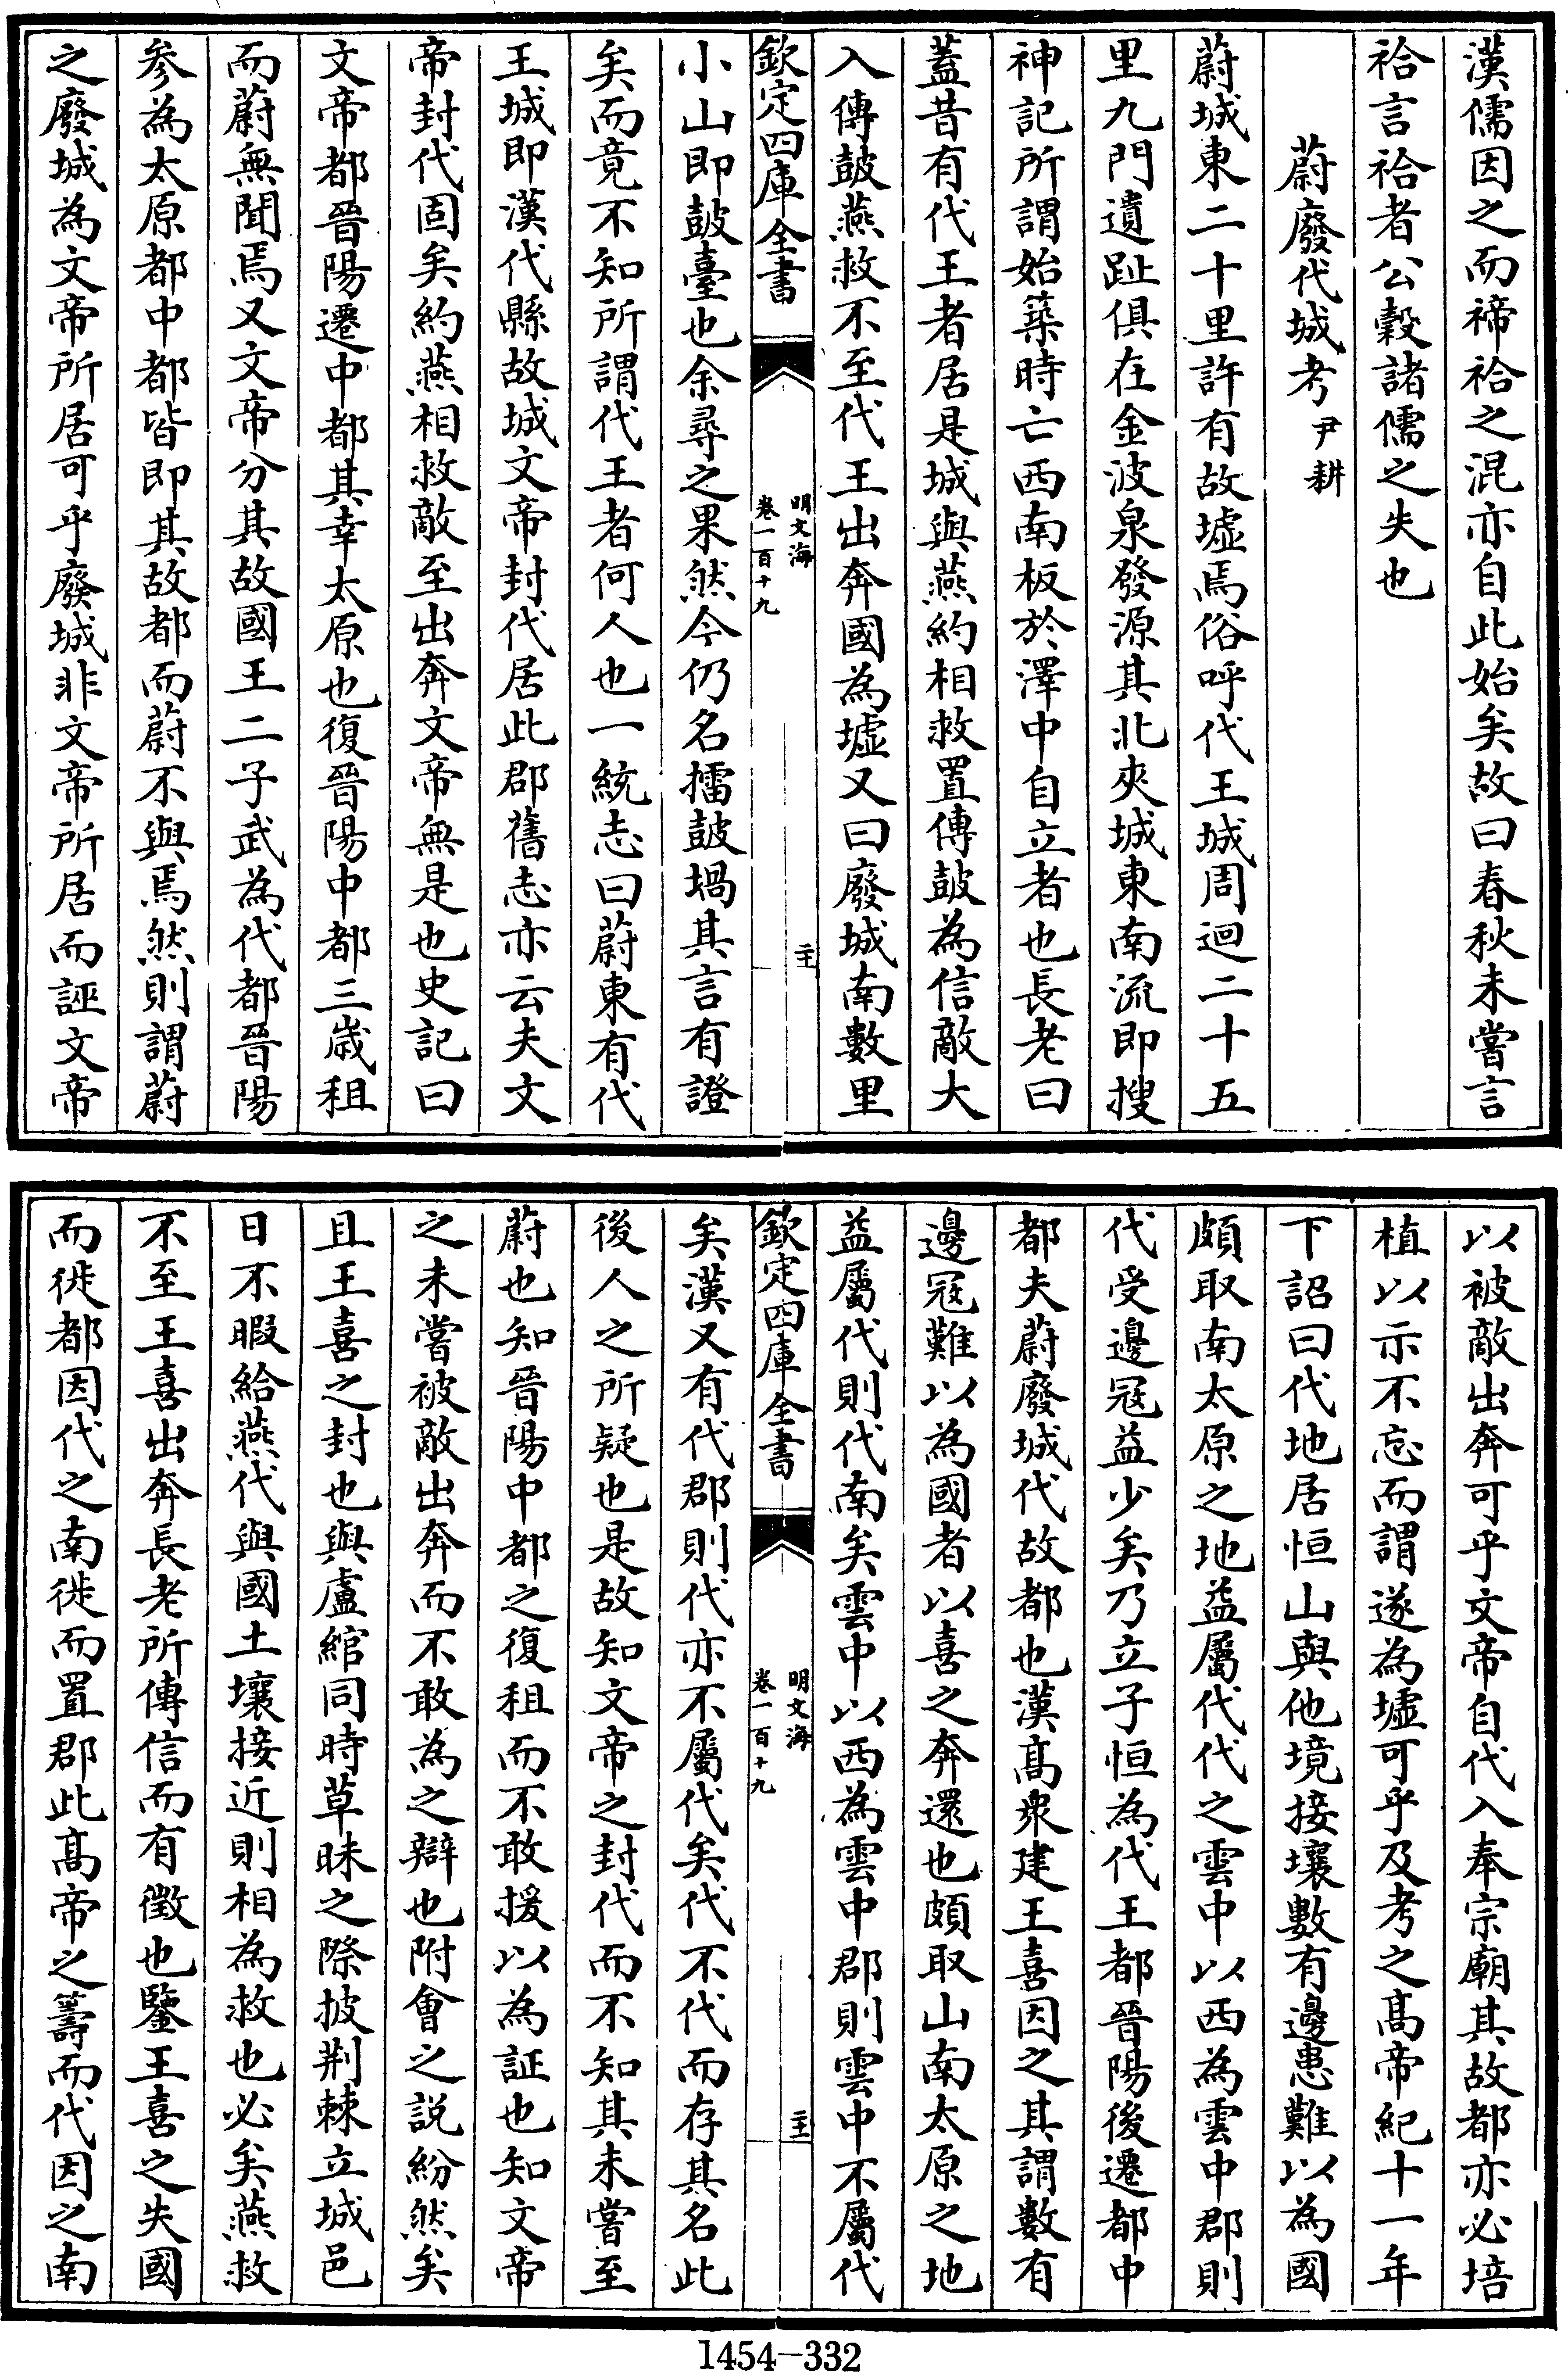 漢儒因之而禘祫之混亦自此始矣故曰春秋未嘗言
祫言祫者公穀諸儒之失也
蔚廢代城考尹耕
蔚城東二十里許有故墟焉俗呼代王城周迴二十五
里九門遺趾俱在金波泉發源其北夾城東南流即搜
神記所謂始築時亡西南板於澤中自立者也長老曰
蓋昔有代王者居是城與燕約相救置傳鼓為信敵大
入傳鼓燕救不至代王出奔國為墟又曰廢城南數里
欽定四庫全書
明文海
卷一百十九
二十
小山即鼓臺也余尋之果然今仍名擂鼓堝其言有證
矣而竟不知所謂代王者何人也一統志曰蔚東有代
王城即漢代縣故城文帝封代居此郡舊志亦云夫文
帝封代固矣約燕相救敵至出奔文帝無是也史記曰
文帝都晉陽遷中都其幸太原也復晉陽中都三歲租
而蔚無聞焉又文帝分其故國王二子武為代都晉陽
參為太原都中都皆即其故都而蔚不與焉然則謂蔚
之廢城為文帝所居可乎廢城非文帝所居而誣文帝
以被敵出奔可乎文帝自代入奉宗廟其故都亦必培
植以示不忘而謂遂為墟可乎及考之髙帝紀十一年
下詔曰代地居恒山與他境接壤數有邊患難以為國
頗取南太原之地益屬代代之雲中以西為雲中郡則
代受邊冦益少矣乃立子恒為代王都晉陽後遷都中
都夫蔚廢城代故都也漢髙衆建王喜因之其謂數有
邊冦難以為國者以喜之奔還也頗取山南太原之地
益屬代則代南矣雲中以西為雲中郡則雲中不屬代
欽定四庫全書
明文海
卷一百十九
矣漢又有代郡則代亦不屬代矣代不代而存其名此
後人之所疑也是故知文帝之封代而不知其未嘗至
蔚也知晉陽中都之復租而不敢援以為証也知文帝
之未嘗被敵出奔而不敢為之辯也附會之説紛然矣
且王喜之封也與盧綰同時草昧之際披荆棘立城邑
日不暇給燕代與國土壤接近則相為救也必矣燕救
不至王喜出奔長老所傳信而有徵也鑒王喜之失國
而徙都因代之南徙而置郡此髙帝之籌而代因之南
1454-332